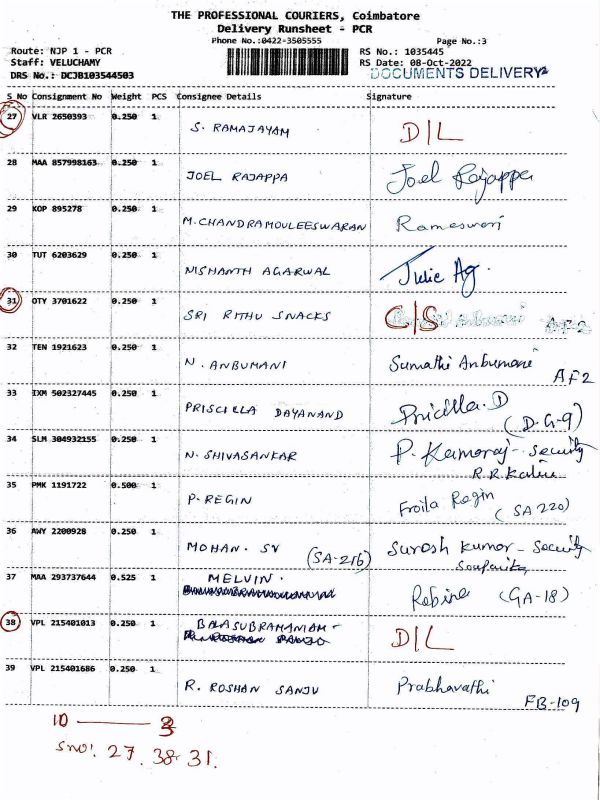 THE PROFESSIONAL COURIERS, Coimbatore
Delivery Runsheet - PCR
Phone No.:0422-3505555 Page No.:3
Route: NJP 1 - PCR RS No.: 1035445
Staff: VELUCHAMY RS Date: 08-Oct-2022
DRS No.: DCJB103544503 DOCUMENTS DELIVERY
S No Consignment No Weight PCS Consignee Details Signature
27 VLR 2650393 0.250 1 S. RAMAJAYAM D/L
28 MAA 857998163 0.250 1 JOEL RAJAPPA Joel Rajappa
29 KOP 895278 0.250 1 M.CHANDRAMOULEESWARAN Rameswari
30 TUT 6203629 0.250 1 NISHANTH AGARWAL Julie Ag.
31 OTY 3701622 0.250 1 SRI RITHU SNACKS C/S AF-2
32 TEN 1921623 0.250 1 N. ANBUMANI Sumathi Anbumani
AF2
33 IXM 502327445 0.250 1 PRISCILLA DAYANAND Pricilla.D
(D.G-9)
34 SLM 304932155 0.250 1 N. SHIVASANKAR P. Kamaraj - Security
35 PMK 1191722 0.500 1 P. REGIN Froila Regin
(SA 220)
36 AWY 2200928 0.250 1 MOHAN. SV (SA-216) Suresh Kumar - Security
37 MAA 293737644 0.525 1 MELVIN. (GA-18)
38 VPL 215401013 0.250 1 BALASUBRAMANIAM - D/L
39 VPL 215401686 0.250 1 R. ROSHAN SANJU Prabhavathi
FB-109
10 — 3
Sno: 27. 38. 31.